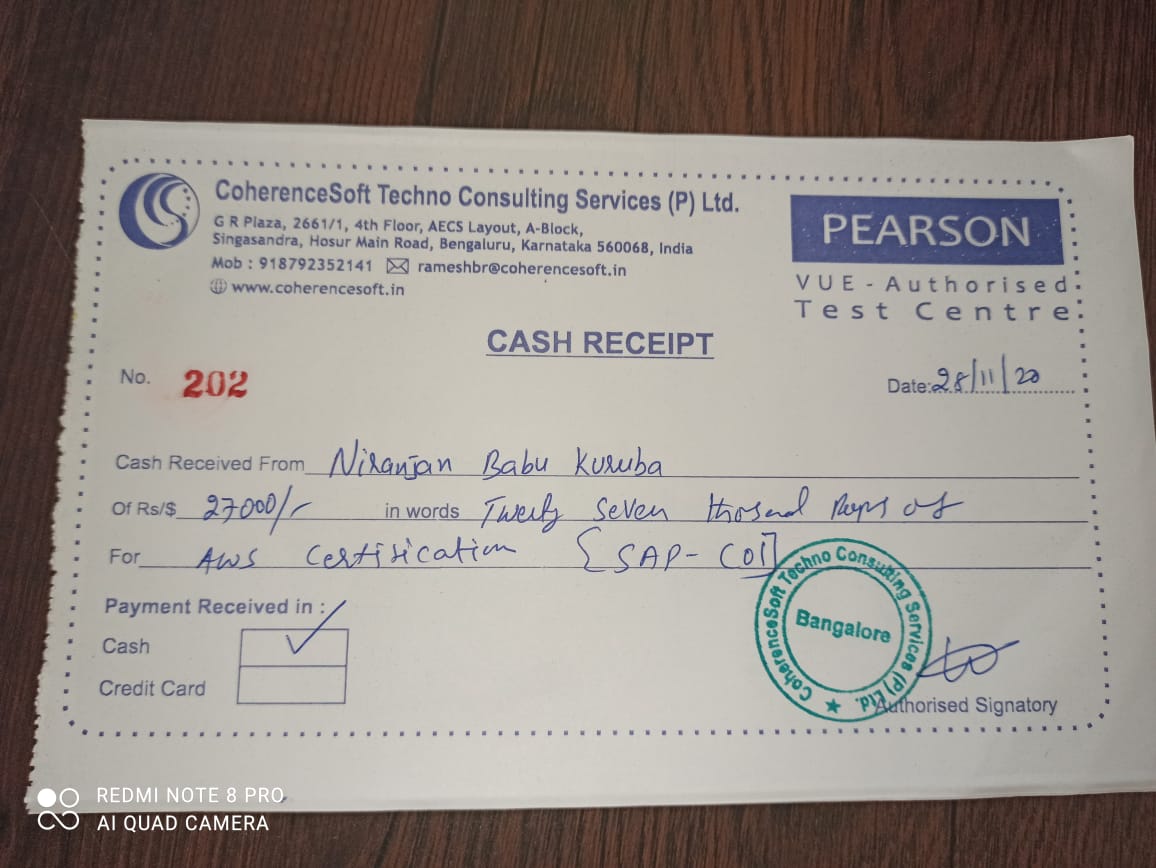 CoherenceSoft Techno Consulting Services (P) Ltd.
G R Plaza, 2661/1, 4th Floor, AECS Layout, A-Block,
Singasandra, Hosur Main Road, Bengaluru, Karnataka 560068, India
Mob : 918792352141 rameshbr@coherencesoft.in
www.coherencesoft.in
PEARSON
VUE - Authorised
Test Centre
CASH RECEIPT
No. 202
Date: 28/11/20
Cash Received From Niranjan Babu Kuruba
Of Rs/$ 27000/- in words Twenty Seven
For AWS Certification [SAP- C01]
Payment Received in :
Cash
Credit Card
CoherenceSoft Techno Consulting Services (P) Ltd.
Bangalore
Authorised Signatory
REDMI NOTE 8 PRO
AI QUAD CAMERA